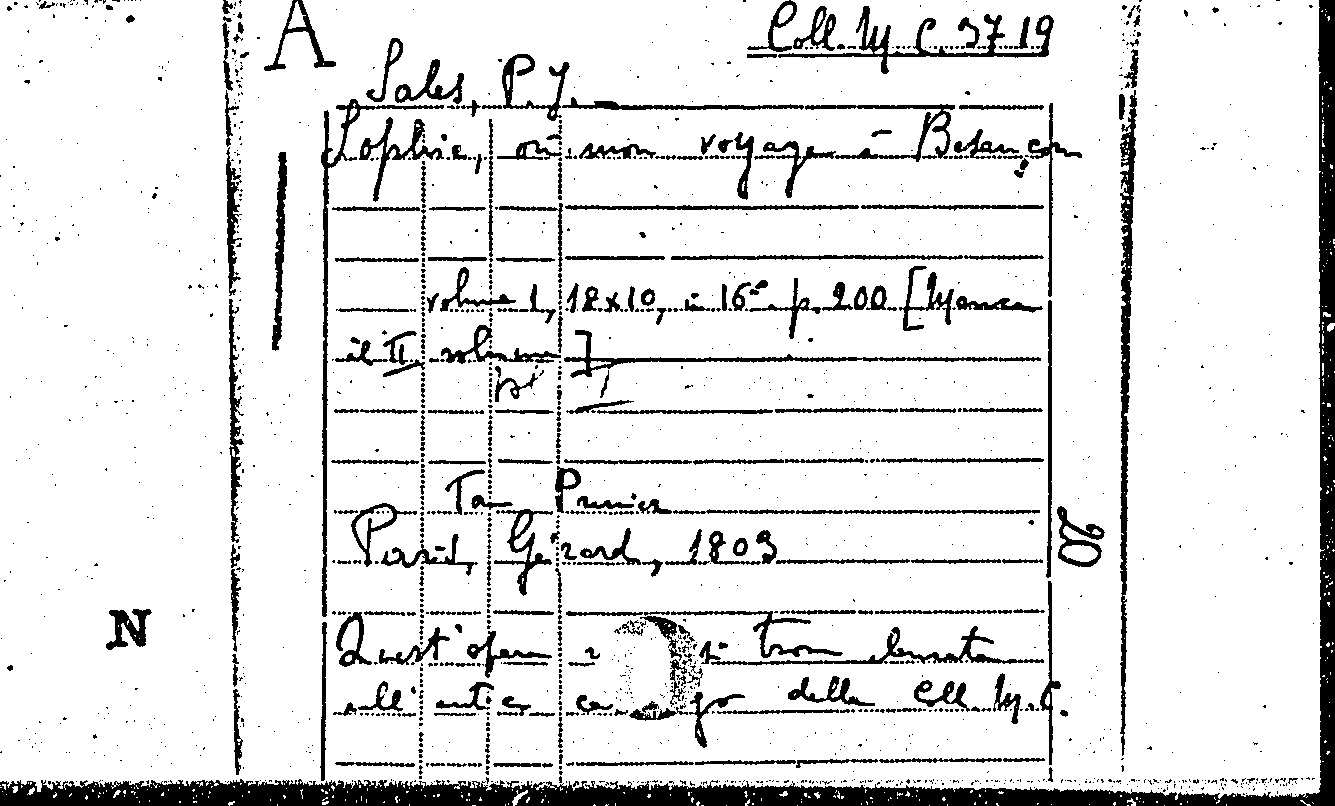 A
Coll. M. C. 3719
Sales, P. J. —
Sophie, où mon voyage à Besançon
volume 1, 18x10, in 16° p. 200 [Manca
il II volume]
I
Tom Premier
Paris, Gérard, 1803
20
N
Quest'opera si trova elencata
nell'antico catalogo della Coll. M. C.